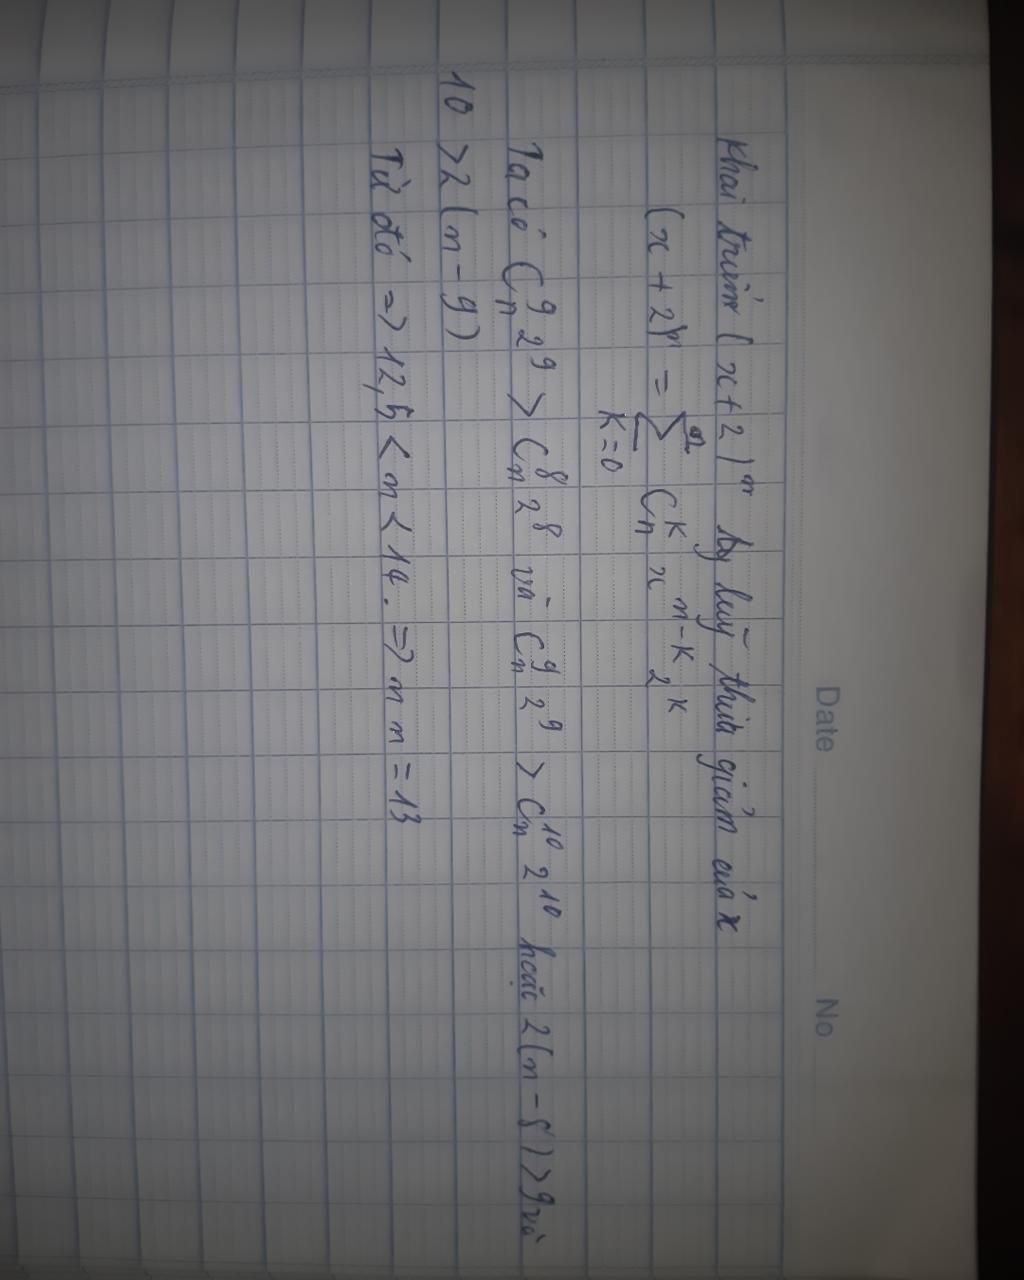 Date No
Khai triển (x+2)^n luỹ thừa giảm của x
(x+2)^n = ∑_{K=0}^{n} C_n^K x^{n-K} 2^K
Ta có C_n^9 2^9 > C_n^8 2^8 và C_n^9 2^9 > C_n^10 2^10 hoặc 2(n-8) > 9 và
10 > 2(n-9)
Từ đó => 12,5 < n < 14. => n n = 13